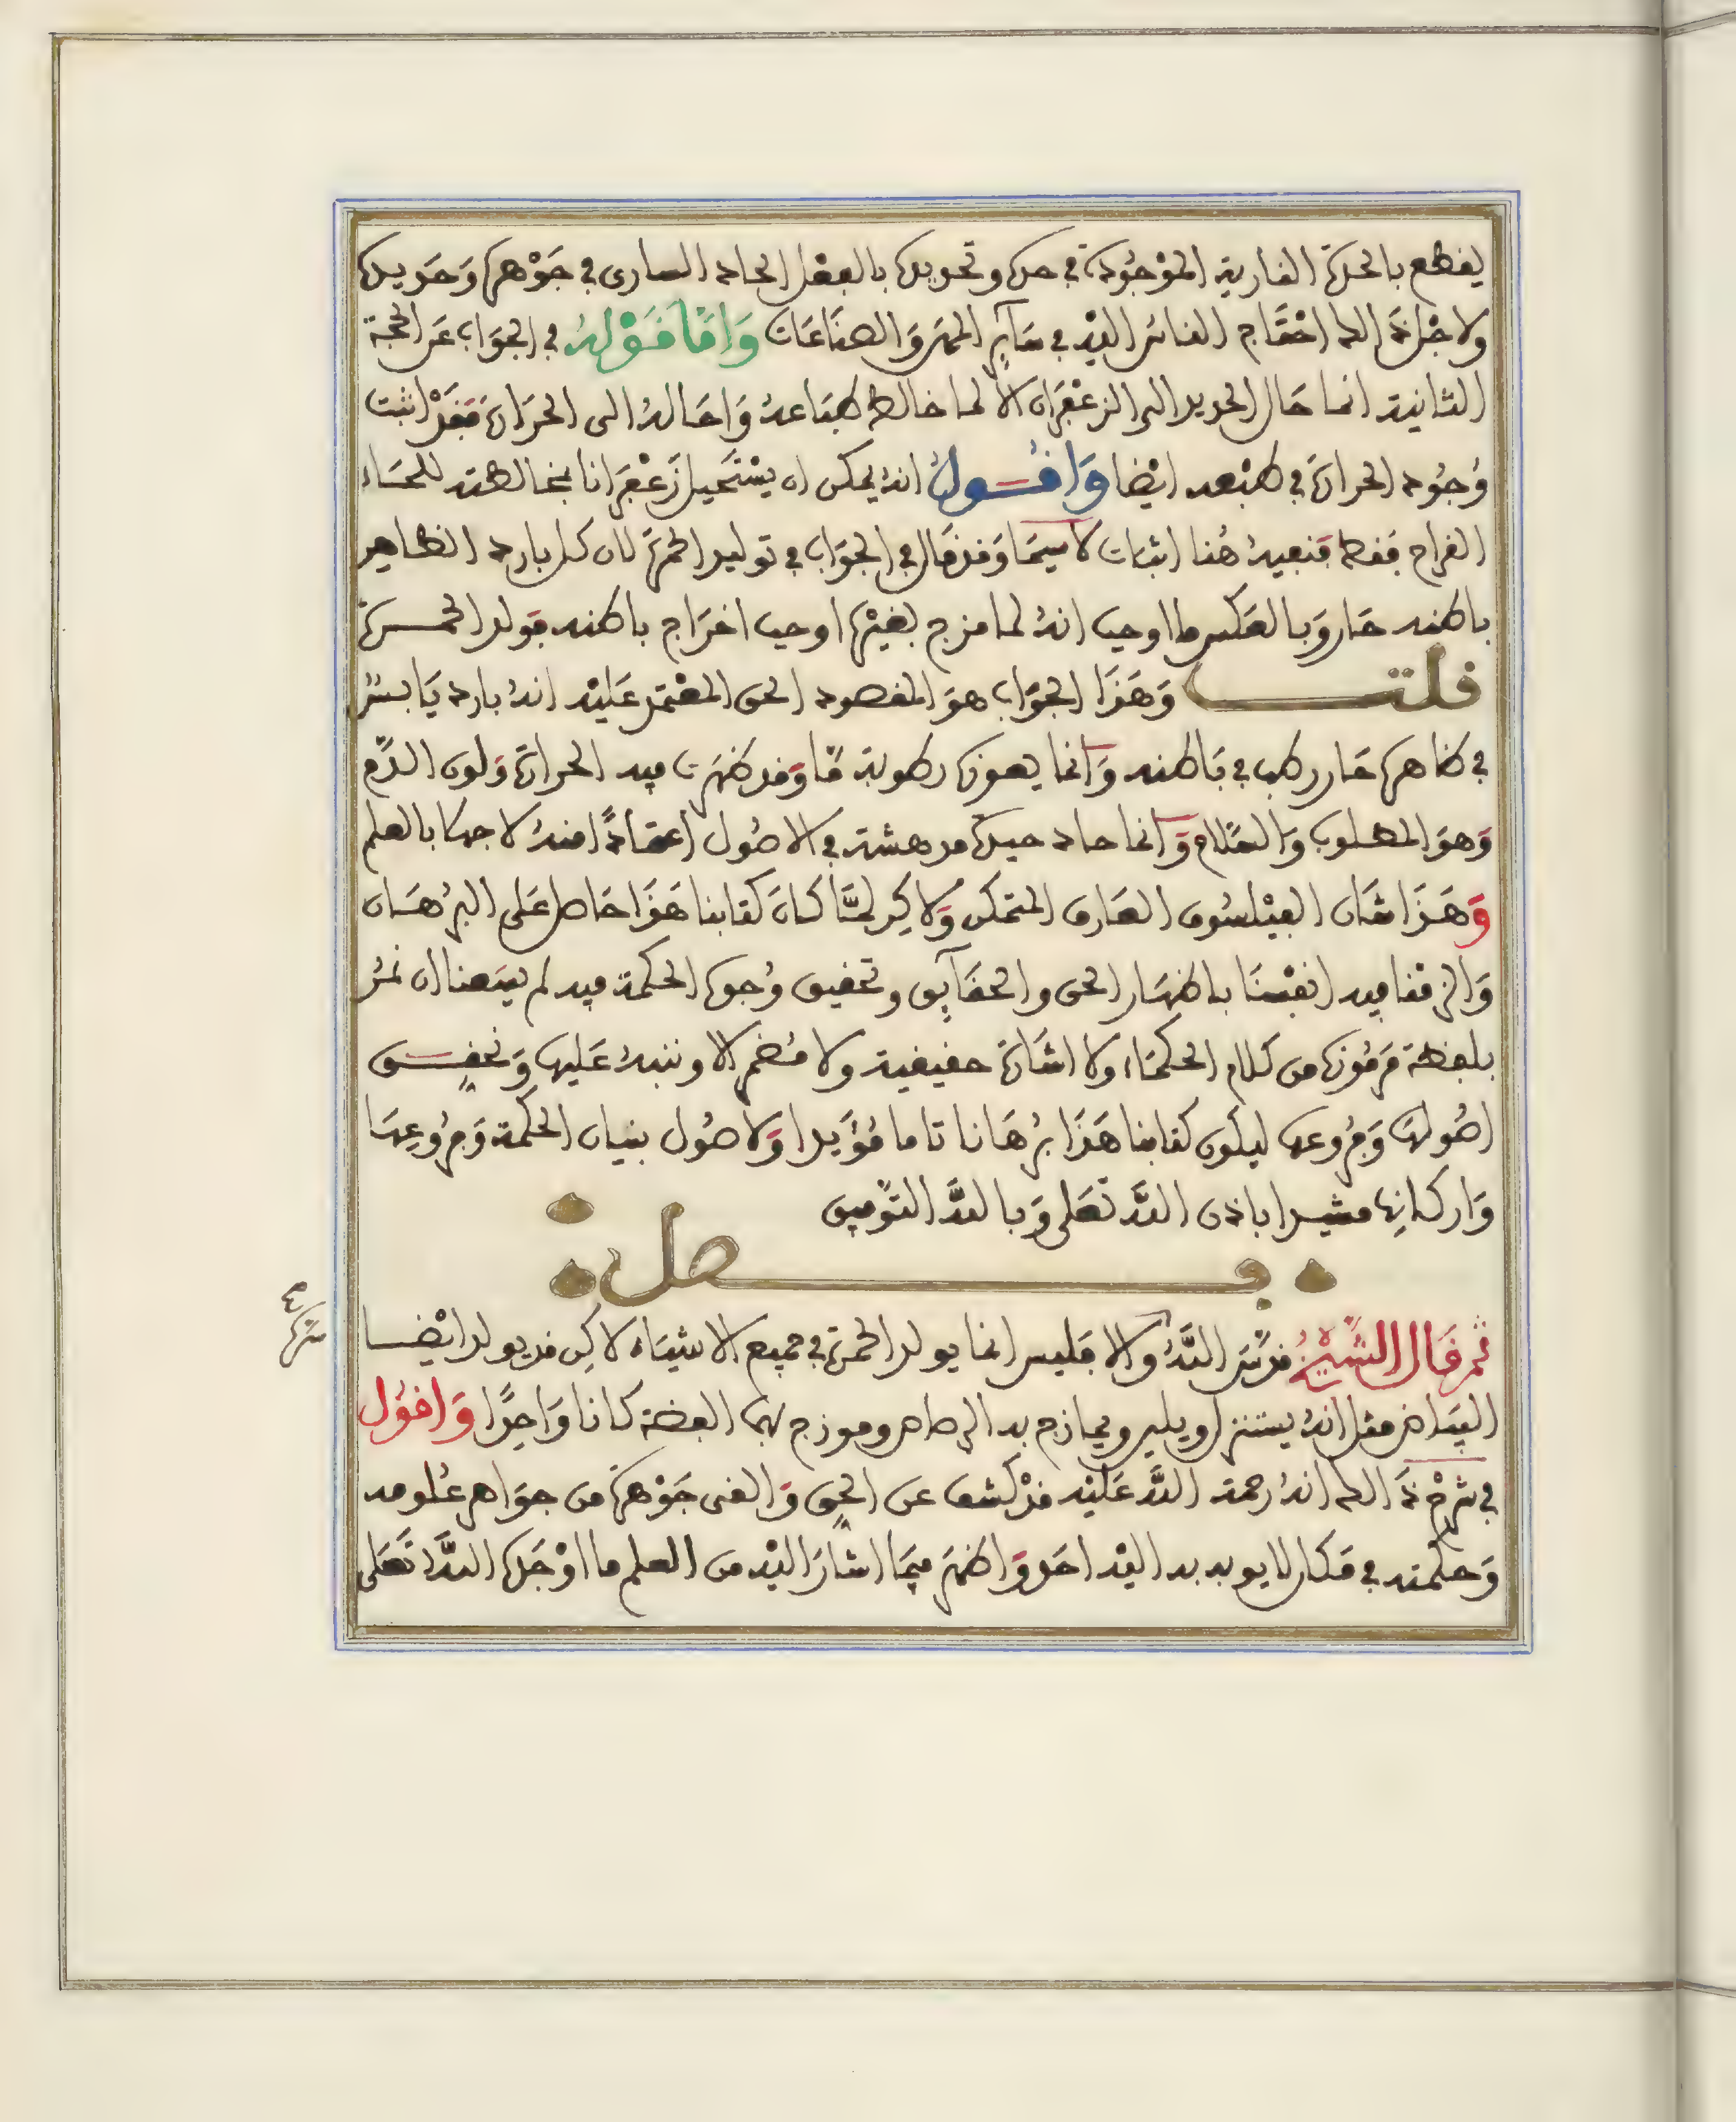 يقطع بالحدة النارية الموجودة في حده وتحديده بالفعل الحاد الساري في جوهره وحديده
ولاجل ذلك احتاج الناس اليه في سآير المهن والصناعات وامّا قوله في الجواب عن الحجة
الثانية انما حال الحديد الى الزعفران الا لما خالط طباعه واحاله الى الحرارة فقد اثبت
وجود الحرارة في طبعه ايضا واقول انه يمكن ان يستحيل زعفرانا بمخالطته للماء
القراح فقط فنفيه هنا اثبات لا سيما وقد قال في الجواب في توليد الحمرة لان كل بارد الظاهر
باطنه حار وبالعكس ما اوجب انه لما مزج بغيره اوجب اخراج باطنه فولد الحمـرة
قلت وهذا الجواب هو المقصود الحق المعتمد عليه انه بارد يابس
في ظاهره حار رطب في باطنه وانما يعوزه رطوبة مّا وقد ظهرت فيه الحرارة ولون الدّم
وهو المطلوب والسّلام وانما حاد حيدة مدهشة في الاصول اعتمادًا منه لا جهلا بالعلم
وهذا شان الفيلسوف العارف المتمكن ولاكن لمّا كان كتابنا هذا حاصل على البرهان
والزمنا فيه انفسنا باظهار الحق والحقآيق وتحقيق وجوه الحكمة فيه لم يسعنا ان نمر
بلفظة مرموزة من كلام الحكماء ولا اشارة حقيقية ولا مضمر الا وننبه عليها ونحقـق
اصولها وفروعها ليكون كتابنا هذا برهانا تاما مؤيدا ولاصول بنيان الحكمة وفروعها
واركانها مشيدا باذن الله تعلى وبالله التوفيق
فصل
ثم قال الشيخ قدّس اللّه والا فليس انما يولد الحمرة في جميع الاشياء لاكن قد يولد ايضـا
البياض مثل انه يستنزل ويلين ويمازج به الرصاص وموزج بهما الفضة كانا واحدًا واقول
في شرح ذلك انه رحمة اللّه عليه قد كشف عن الحق والقى جوهرة من جواهر علومه
وحكمته في مكان لا يوبه به اليه احد واظهر فيما اشار اليه من العلم ما اوجده اللّه تعلى